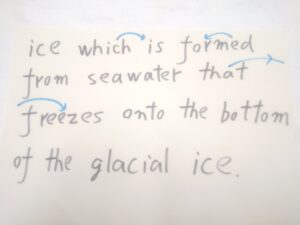 ice which is formed
from seawater that
freezes onto the bottom
of the glacial ice.